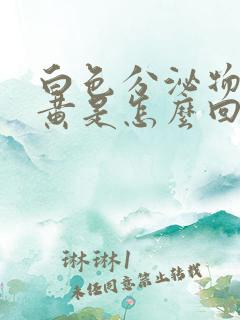 白色分泌物
黄是怎麼回
琳琳1
未经同意禁止转载